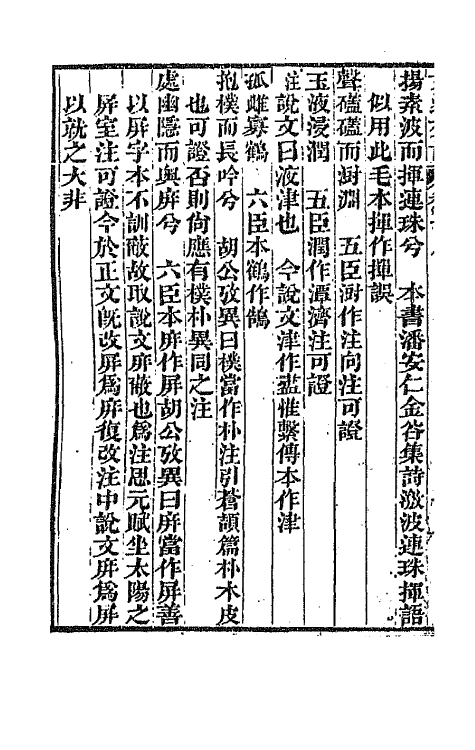 揚素波而揮連珠兮　本書潘安仁金谷集詩激波連珠揮語
似用此毛本揮作揮誤
聲礚礚而澍淵　五臣澍作注向注可證
玉液浸潤　五臣潤作潭濟注可證
注說文曰液津也　今說文津作盡惟繫傳本作津
孤雌寡鶴　六臣本鶴作鵠
抱樸而長吟兮　胡公攷異曰樸當作朴注引蒼頡篇朴木皮
也可證否則尙應有樸朴異同之注
處幽隱而奥屏兮　六臣本屏作屏胡公攷異曰屏當作屏善
以屏字本不訓蔽故取說文屏蔽也爲注思元賦坐太陽之
屏室注可證今於正文旣改屏爲屏復改注中說文屏爲屏
以就之大非